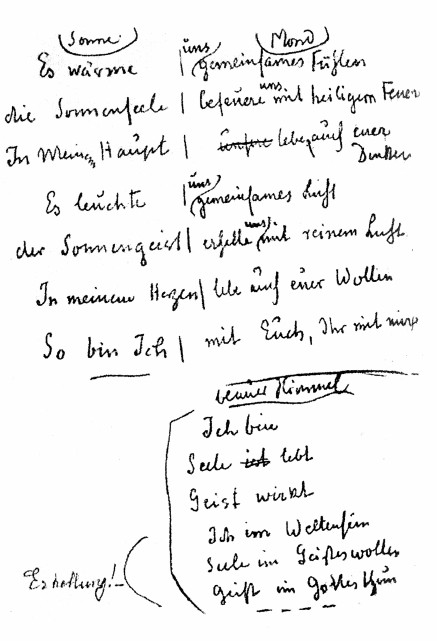 Sonne. Mond
Es wärme | uns gemeinsames Fühlen
die Sonnenseele | befeuere uns mit heiligem Feuer
In Meinem Haupt | lebe auch euer
Denken
Es leuchte | uns gemeinsames Licht
der Sonnengeist | erhelle uns mit reinem Luft
In meinem Herzen | lebe auch euer Wollen
So bin Ich | mit Euch, Ihr mit mir
blauer Himmel
Ich bin
Seele ist lebt
Geist wirkt
Ich im Weltensein
Seele im Geisteswollen
Geist im Gottes thun